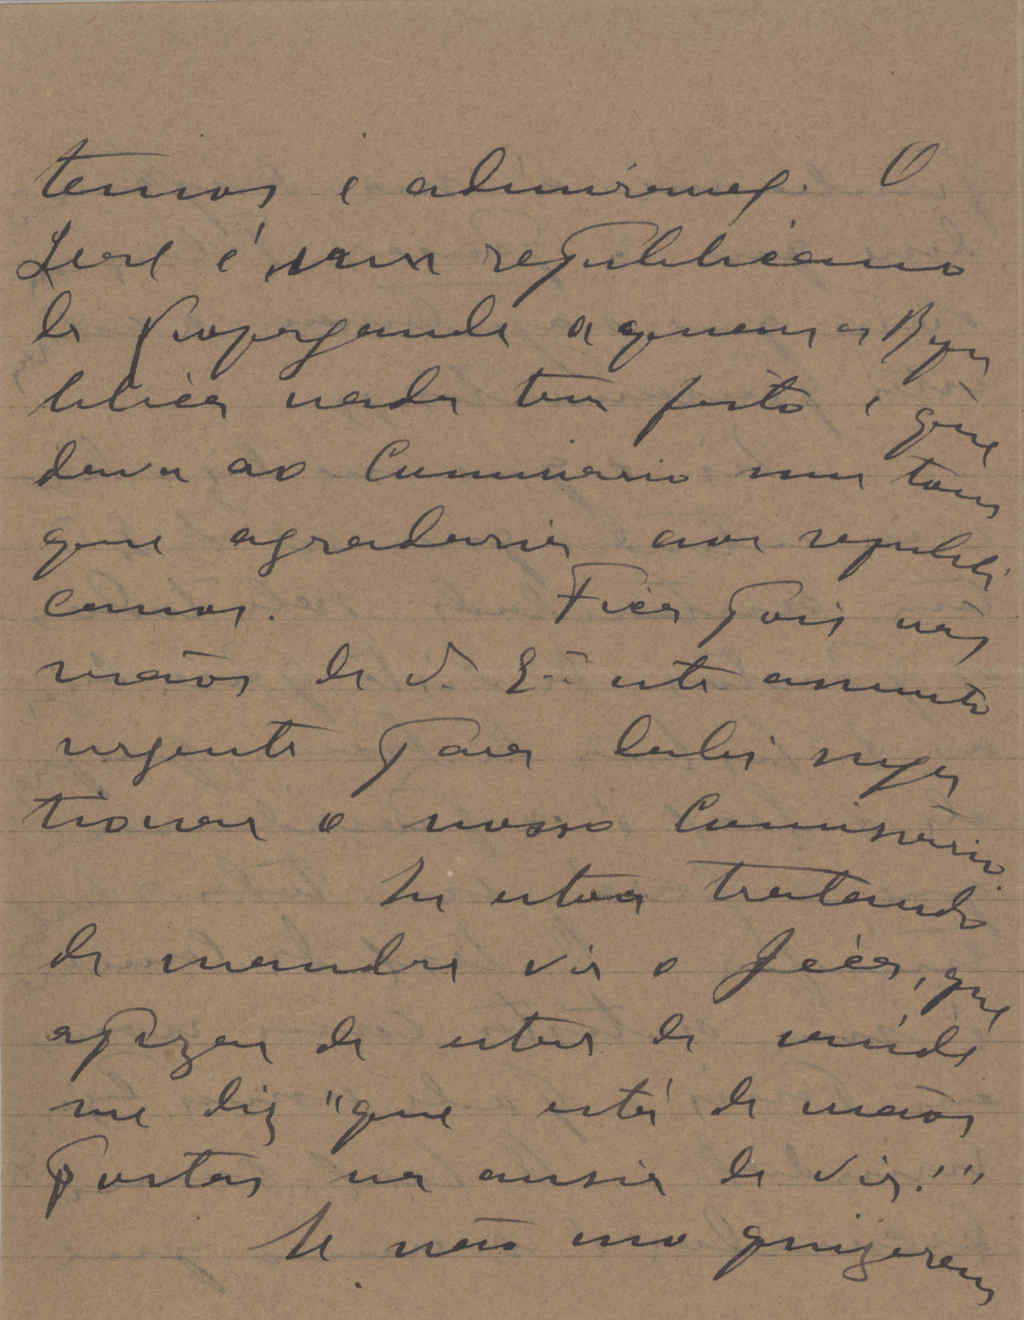 temos e admiramos. O
Leal é um republicano
da Propaganda a quem a Repu
blica nada tem feito e que
dava ao Comissario um tom
que agradaria aos republi
canos. Fica pois nas
mãos de V. Exª este assunto
urgente para
o nosso Comissario.
Eu estou tratando
de mandar vir o que
apezar de estar de saude
me diz "que está de mãos
postas na ansia de vir!"
Se não mo quizerem